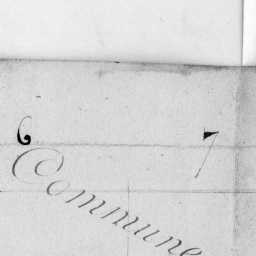 6 7
Commune